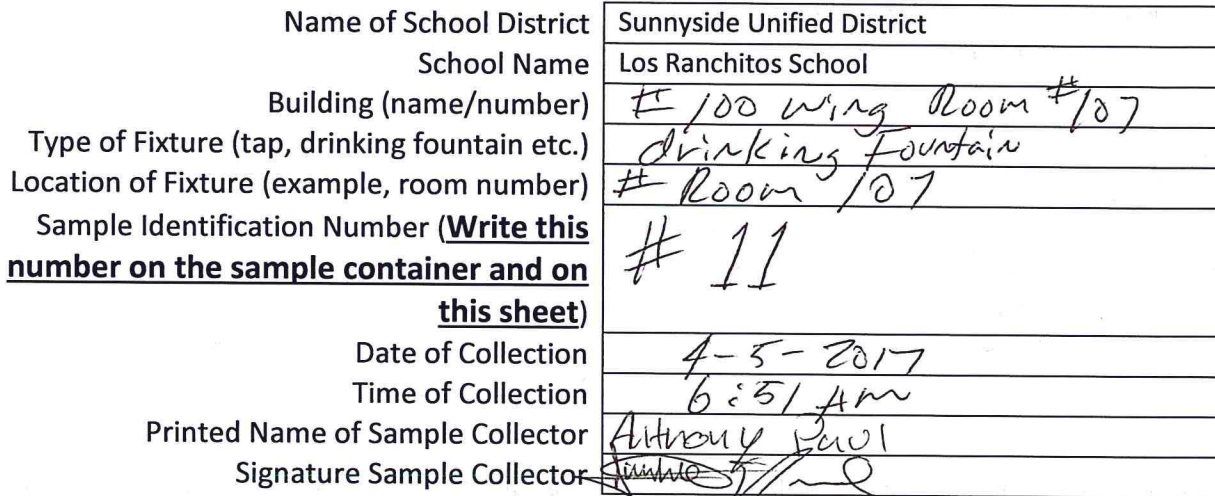 Name of School District Sunnyside Unified District
School Name Los Ranchitos School
Building (name/number) # 100 wing Room #107
Type of Fixture (tap, drinking fountain etc.) drinking Fountain
Location of Fixture (example, room number) # Room 107
Sample Identification Number (Write this
number on the sample container and on
this sheet)
# 11
Date of Collection 4-5-2017
Time of Collection 6:51 Am
Printed Name of Sample Collector Anthony Paul
Signature Sample Collector